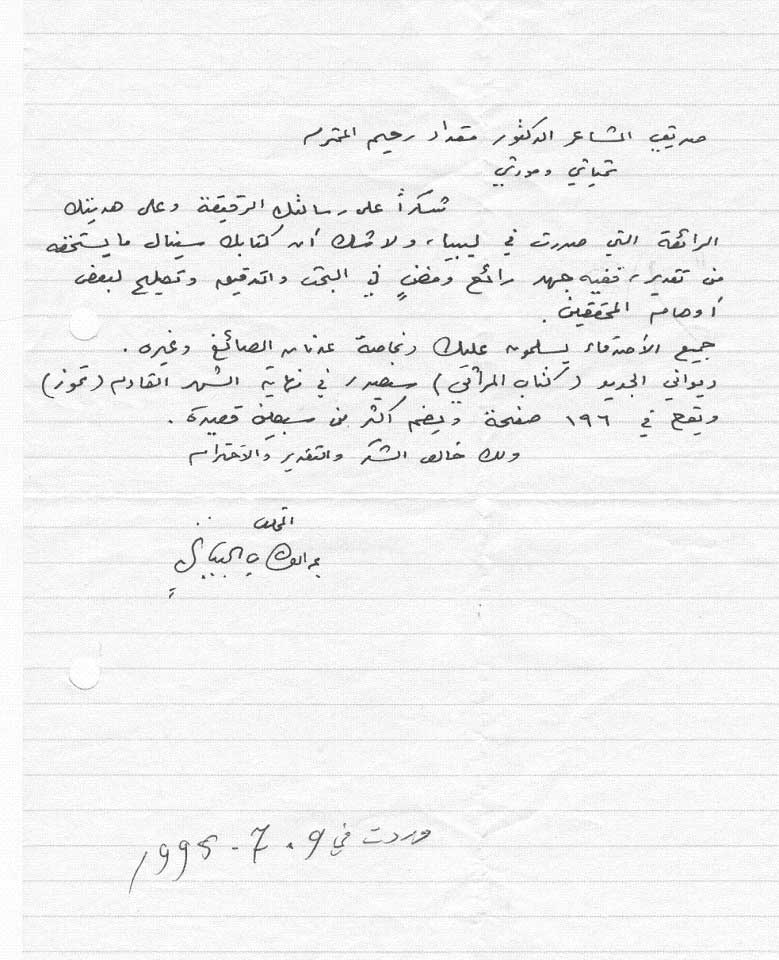 صديقي الشاعر الدكتور مقداد رحيم المحترم
تحياتي ومودتي
شكراً على رسالتك الرقيقة وعلى هديتك
الرائعة التي صدرت في ليبيا، ولا شك أن كتابك سينال ما يستحقه
من تقدير، ففيه جهد رائع ومضنٍ في البحث والتدقيق وتصليح لبعض
أوهام المحققين.
جميع الأصدقاء يسلمون عليك وبخاصة عدنان الصائغ وغيره.
ديواني الجديد (كتاب المراثي) سيصدر في نهاية الشهر القادم (تموز)
ويقع في ١٩٦ صفحة ويضم أكثر من سبعين قصيدة.
ولك خالص الشكر والتقدير والاحترام
المخلص
عبد الوهاب البياتي
وردت في 9 . 7 - 1995